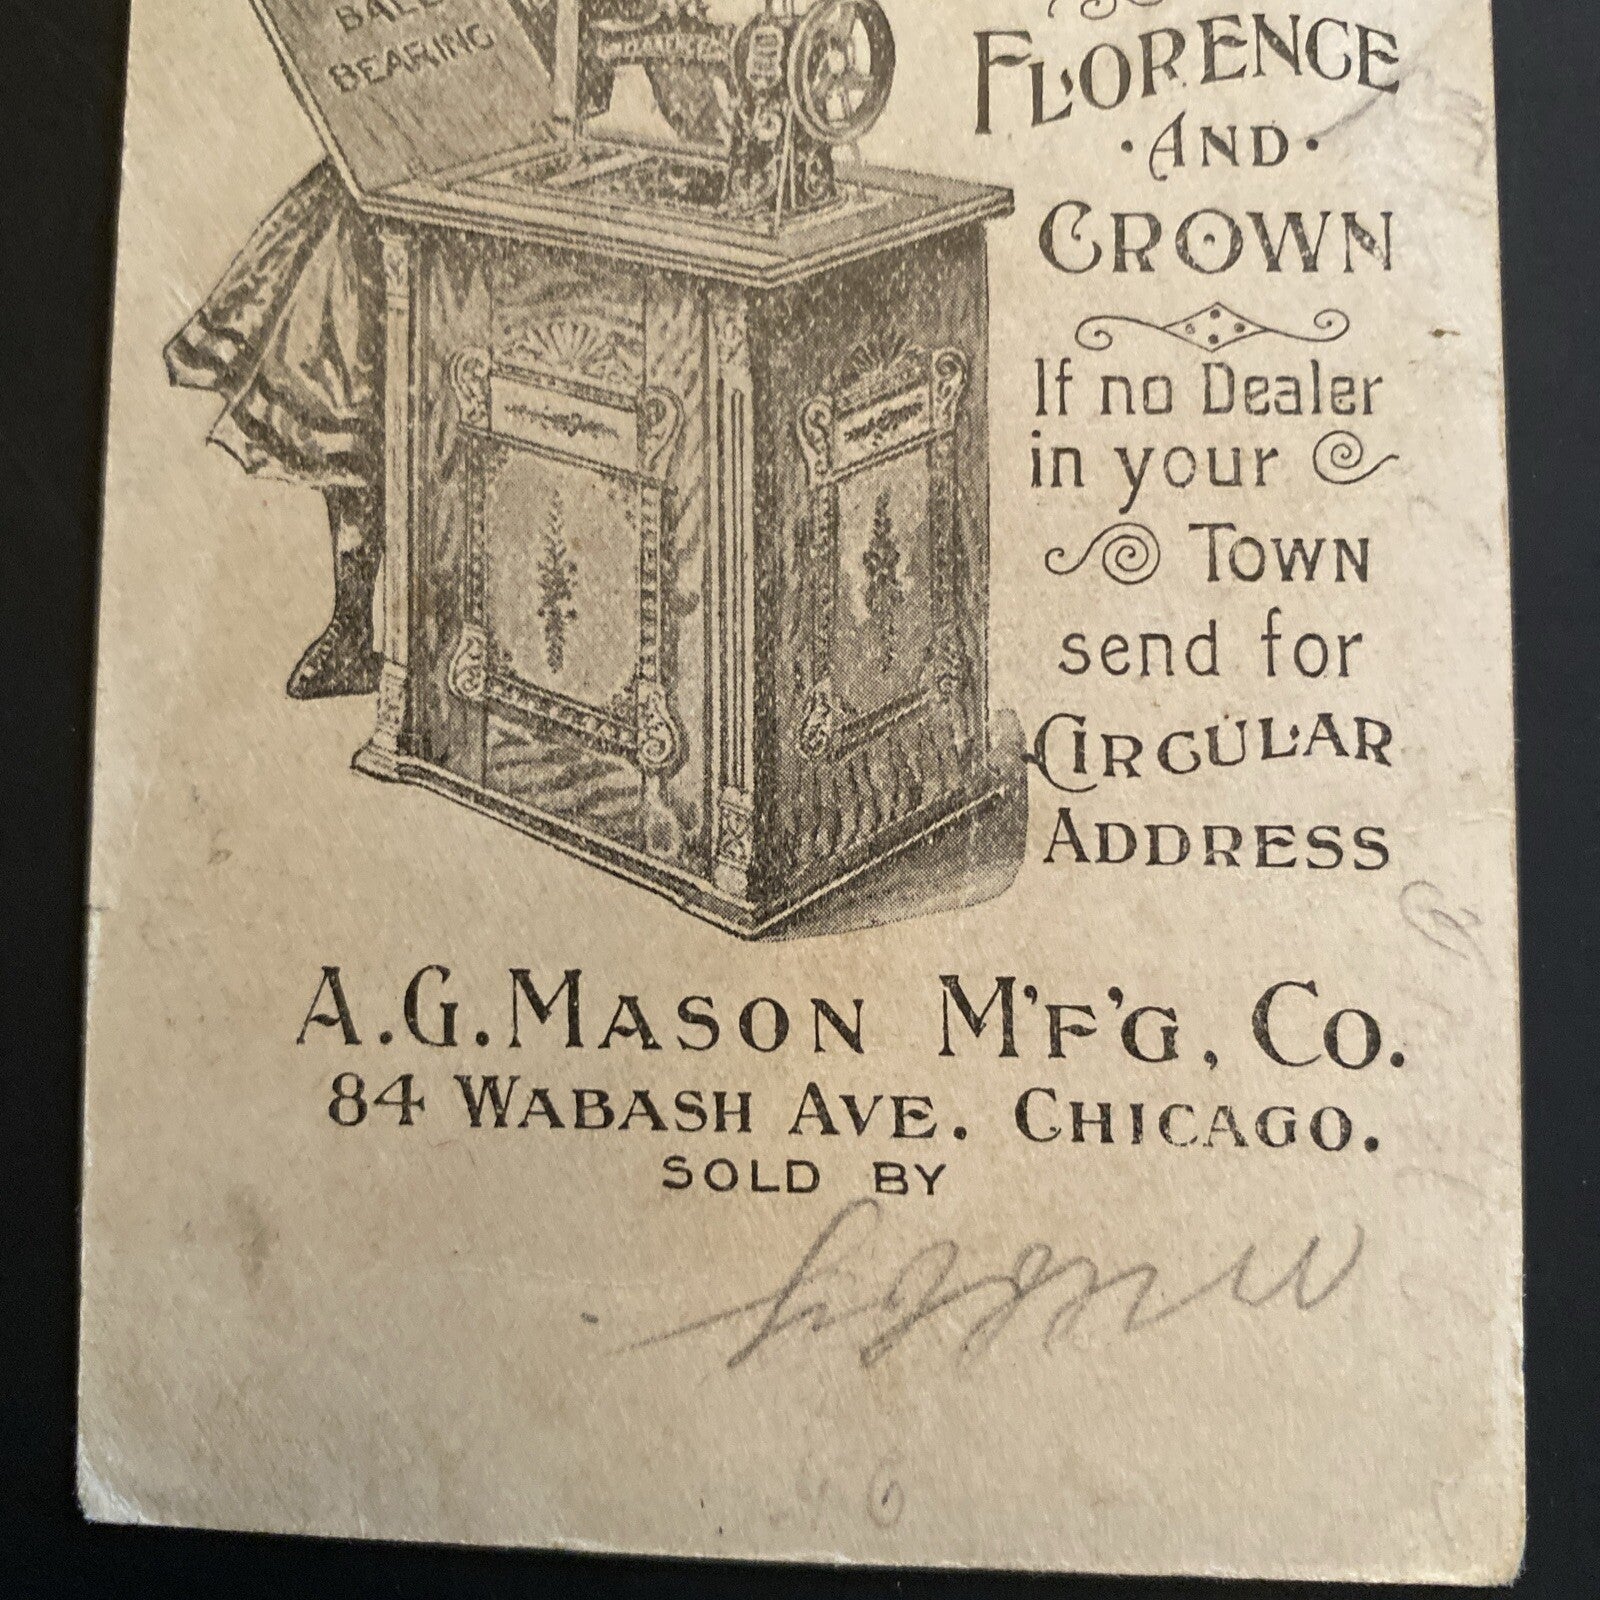 BALL
BEARING
FLORENCE
·AND·
CROWN
If no Dealer
in your
TOWN
send for
CIRCULAR
ADDRESS
A.G. MASON M'F'G, CO.
84 WABASH AVE. CHICAGO.
SOLD BY